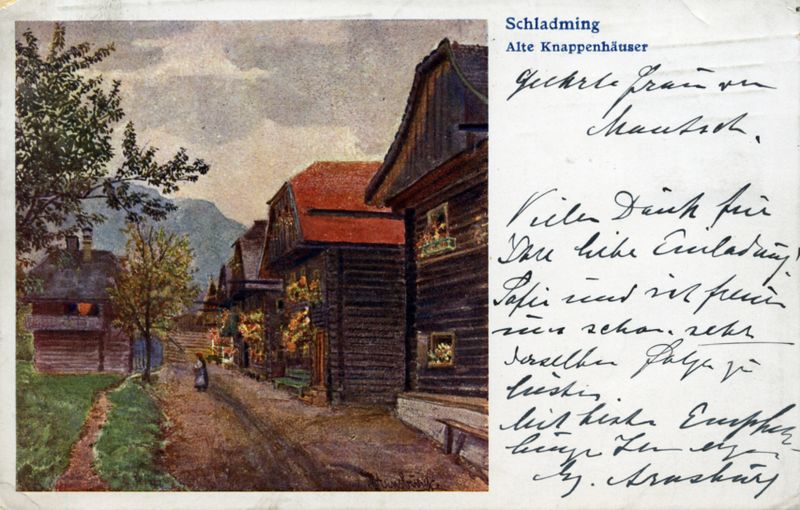 Schladming
Alte Knappenhäuser
Geehrte Frau von
Mautsch.
Vielen Dank für
Ihre liebe Einladung!
Sofie und ich freuen
uns schon sehr
derselben Folge zu
leisten.
Mit besten Empfeh-
lungen Ihr
Arnsburg